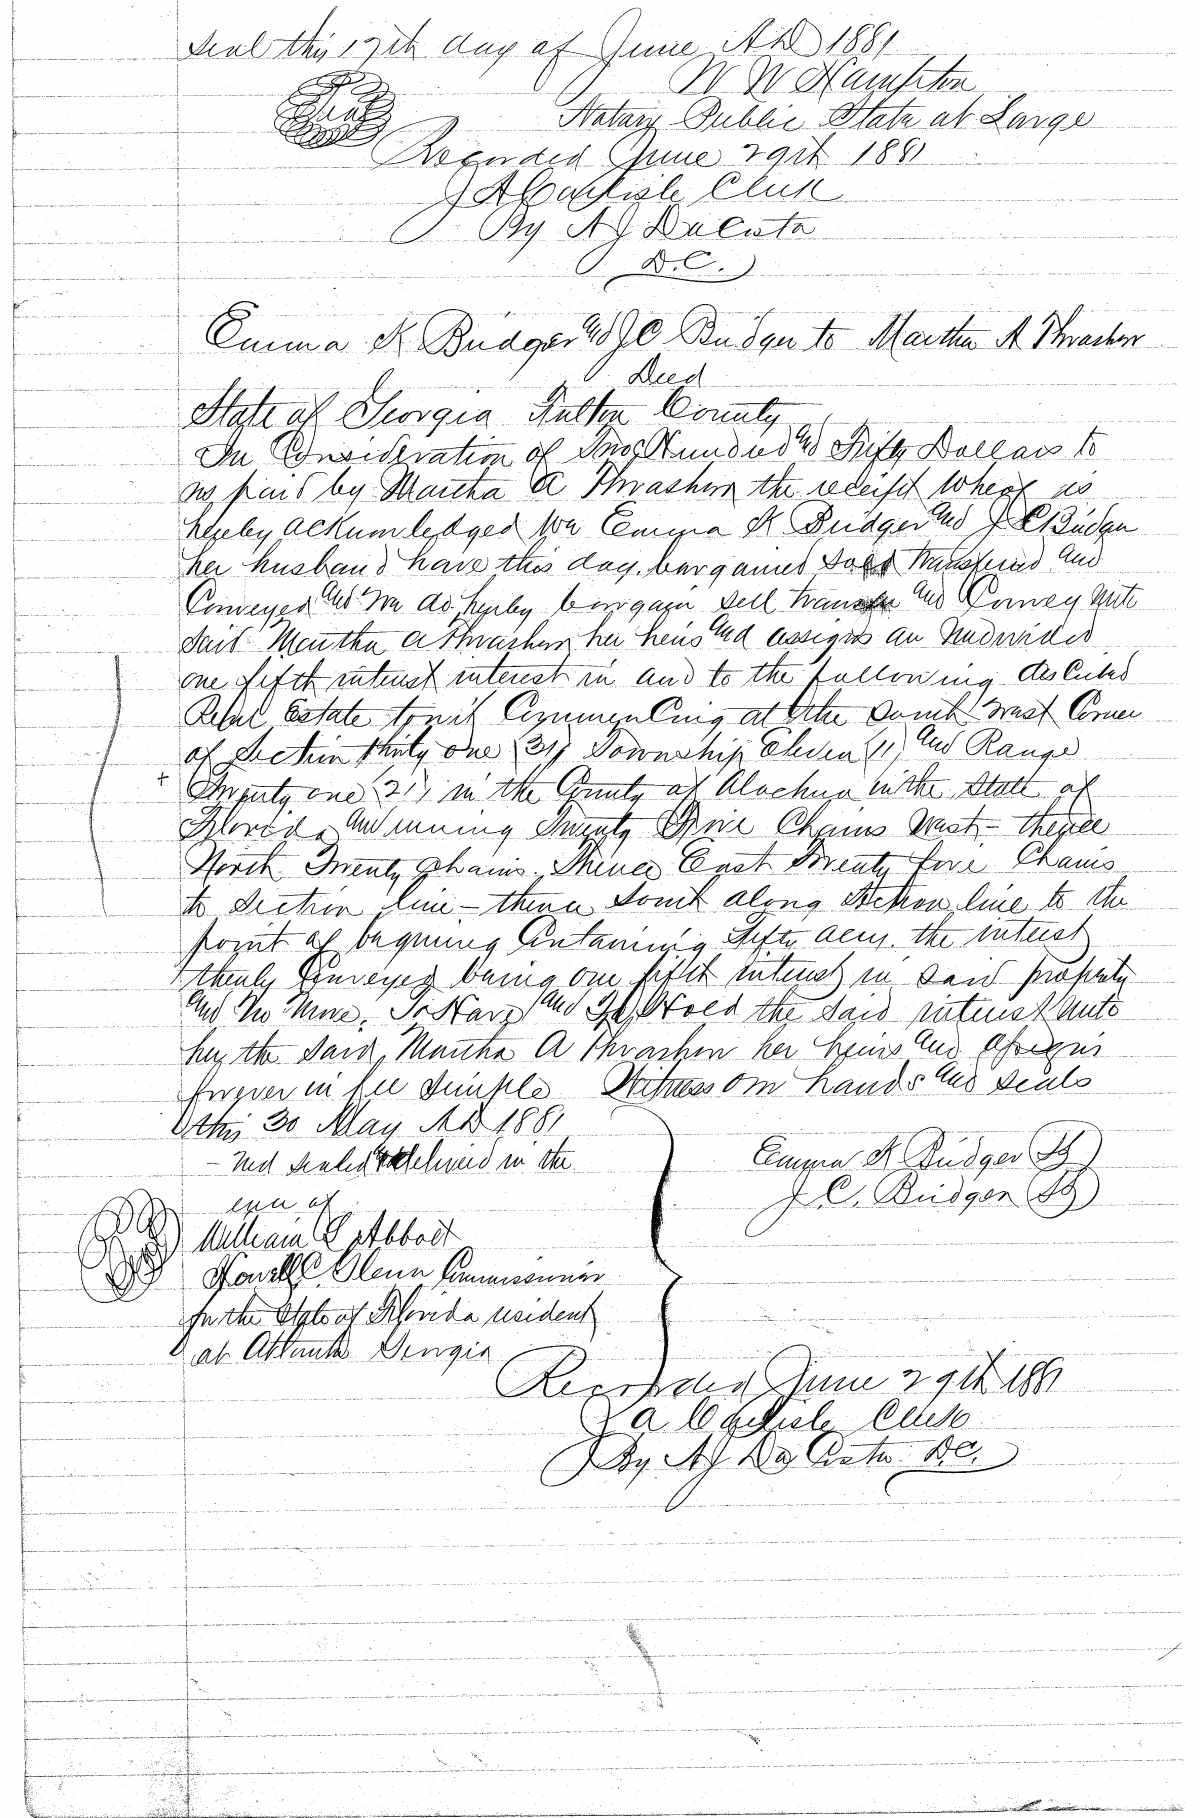 Seal this 17th day of June A.D 1881
W W Hampton
Seal
Notary Public State at Large
Recorded June 29th 1881
J A Carlisle Clerk
By A J DaCosta
D.C.
Emma K Bridger and J C Bridger to Martha A Thrasher
Deed
State of Georgia Fulton County
In Consideration of Two Hundred and Fifty Dollars to
us paid by Martha A Thrasher the receipt whereof is
hereby acknowledged We Emma K Bridger and J C Bridger
her husband have this day bargained Sold Transferred and
Conveyed and We do hereby bargain sell transfer and Convey unto
said Martha A Thrasher her heirs and assigns an undivided
one fifth interest interest in and to the following described
Real Estate towit Commencing at the South West Corner
of Section thirty one (31) Township Eleven (11) and Range
Twenty one (21) in the County of Alachua in the State of
Florida and running Twenty Five Chains West - thence
North Twenty Chains. Thence East Twenty five Chains
to Section line - thence South along Section line to the
point of beginning Containing Fifty acres. the interest
hereby Conveyed being one fifth interest in said property
and no more, To Have and To Hold the said interest unto
her the said Martha A Thrasher her heirs and assigns
forever in fee simple Witness our hands and seals
this 30 May A.D 1881
- ned sealed & delivered in the
Emma K Bridger
ence of
J. C. Bridger
William L Abbott
Howell C. Glenn Commissioner
for the State of Florida resident
at Atlanta Georgia
Recorded June 29th 1881
J A Carlisle Clerk
By A J Da Costa D.C.